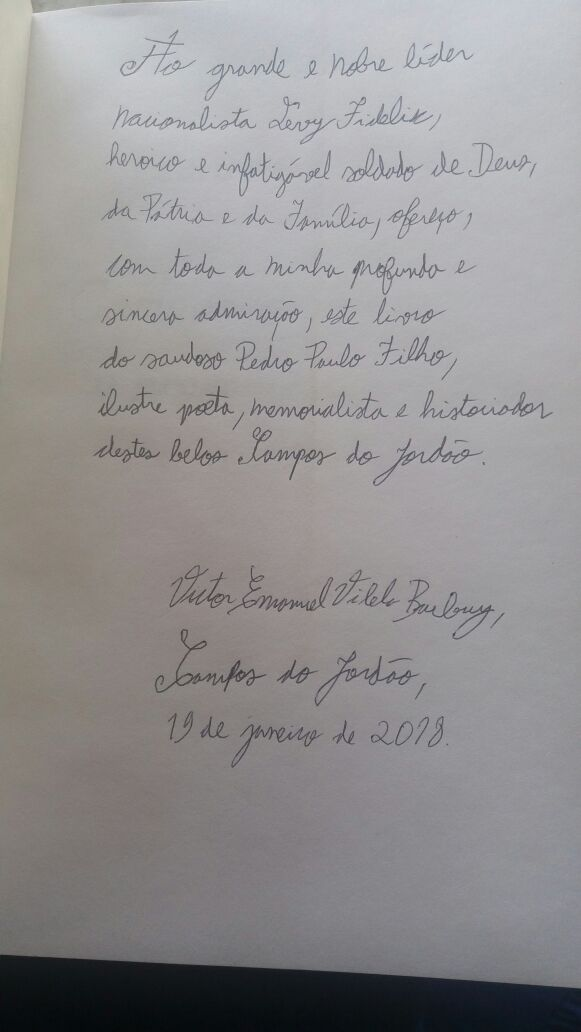 Ao grande e nobre líder
nacionalista Levy Fidelix,
heroico e infatigável soldado de Deus,
da Pátria e da Família, ofereço,
com toda a minha profunda e
sincera admiração, este livro
do saudoso Pedro Paulo Filho,
ilustre poeta, memorialista e historiador
destes belos Campos do Jordão.
Victor Emanuel Vilela Barbuy,
Campos do Jordão,
19 de janeiro de 2018.